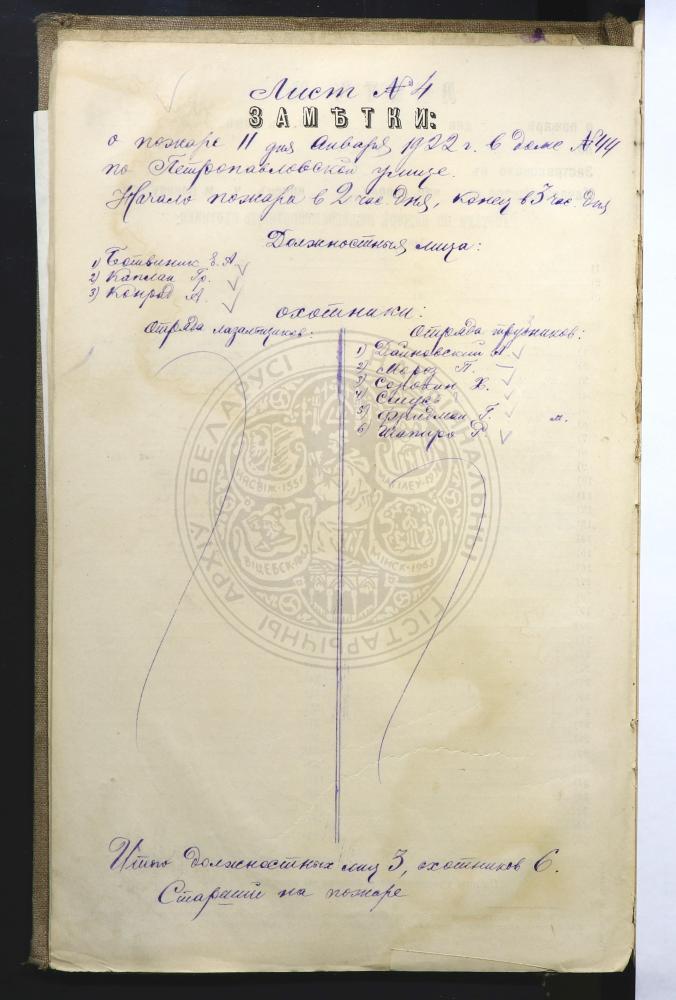 Лист № 4
ЗАМѢТКИ:
о пожаре 11 дня Января 1922 г. в доме № 44
по Петропавловской улице.
Начало пожара в 2 час. дня, конец в 3 час. дня
Должностныя лица:
1) Ботвиник Е. А.
2) Каплан Гр.
3) Конрад А.
охотники:
Отряда лазальщиков:
Отряда трубников:
1) Дайновский
2) Мороз П.
3) Сорокин Х.
4)
5) Фридман Г. м.
6) Шапиро Р.
Итого должностных лиц 3, охотников 6.
Старший на пожаре
ГІСТАРЫЧНЫ АРХІЎ БЕЛАРУСІ
НЯСВІЖ·1551
МАГІЛЕЎ
ВІЦЕБСК
МІНСК·1963